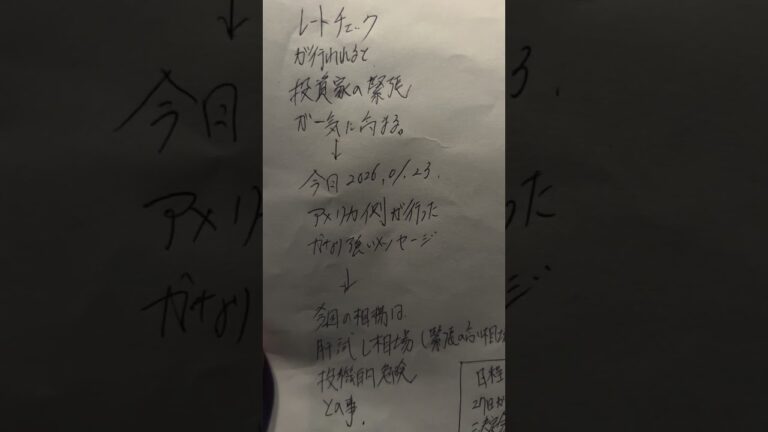 レートチェック
が行われると
投資家の緊張
が一気に高まる。
↓
今日 2026.01.23.
アメリカ側が行った
かなり強いメッセージ
↓
今回の相場は
肝試し相場(緊張の高い相
投機的危険
との事.
日経
27日